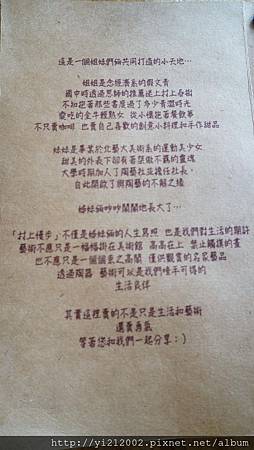 這是一個姐妹們倆共同打造的小天地…
姐姐是念經濟系的假文青
國中時透過恩師的推薦迷上村上春樹
不知抱著那些書度過了多少青澀時光
愛吃的金牛輕熟女 從小懷抱著餐飲夢
不只賣咖啡 也賣自己喜歡的創意小料理和手作甜品
妹妹是畢業於北藝大美術系的運動美少女
甜美的外表下卻有著桀傲不羈的靈魂
大學時期加入了陶藝社並議任社長，
自此開啟了與陶藝的不解之緣
姊妹倆吵吵鬧鬧地長大了…
「村上慢步」不僅是姊妹倆的人生寫照 也是我們對生活的期許
藝術不應只是一幅幅掛在美術館 高高在上 禁止觸摸的畫
也不應只是一個個束之高閣 僅供觀賞的名家藝品
透過陶器 藝術可以是我們唾手可得的
生活良伴
其實這裡賣的不是只是生活和藝術
還賣勇氣
等著您和我們一起分享：）
http://yi212002.pixnet.net/album